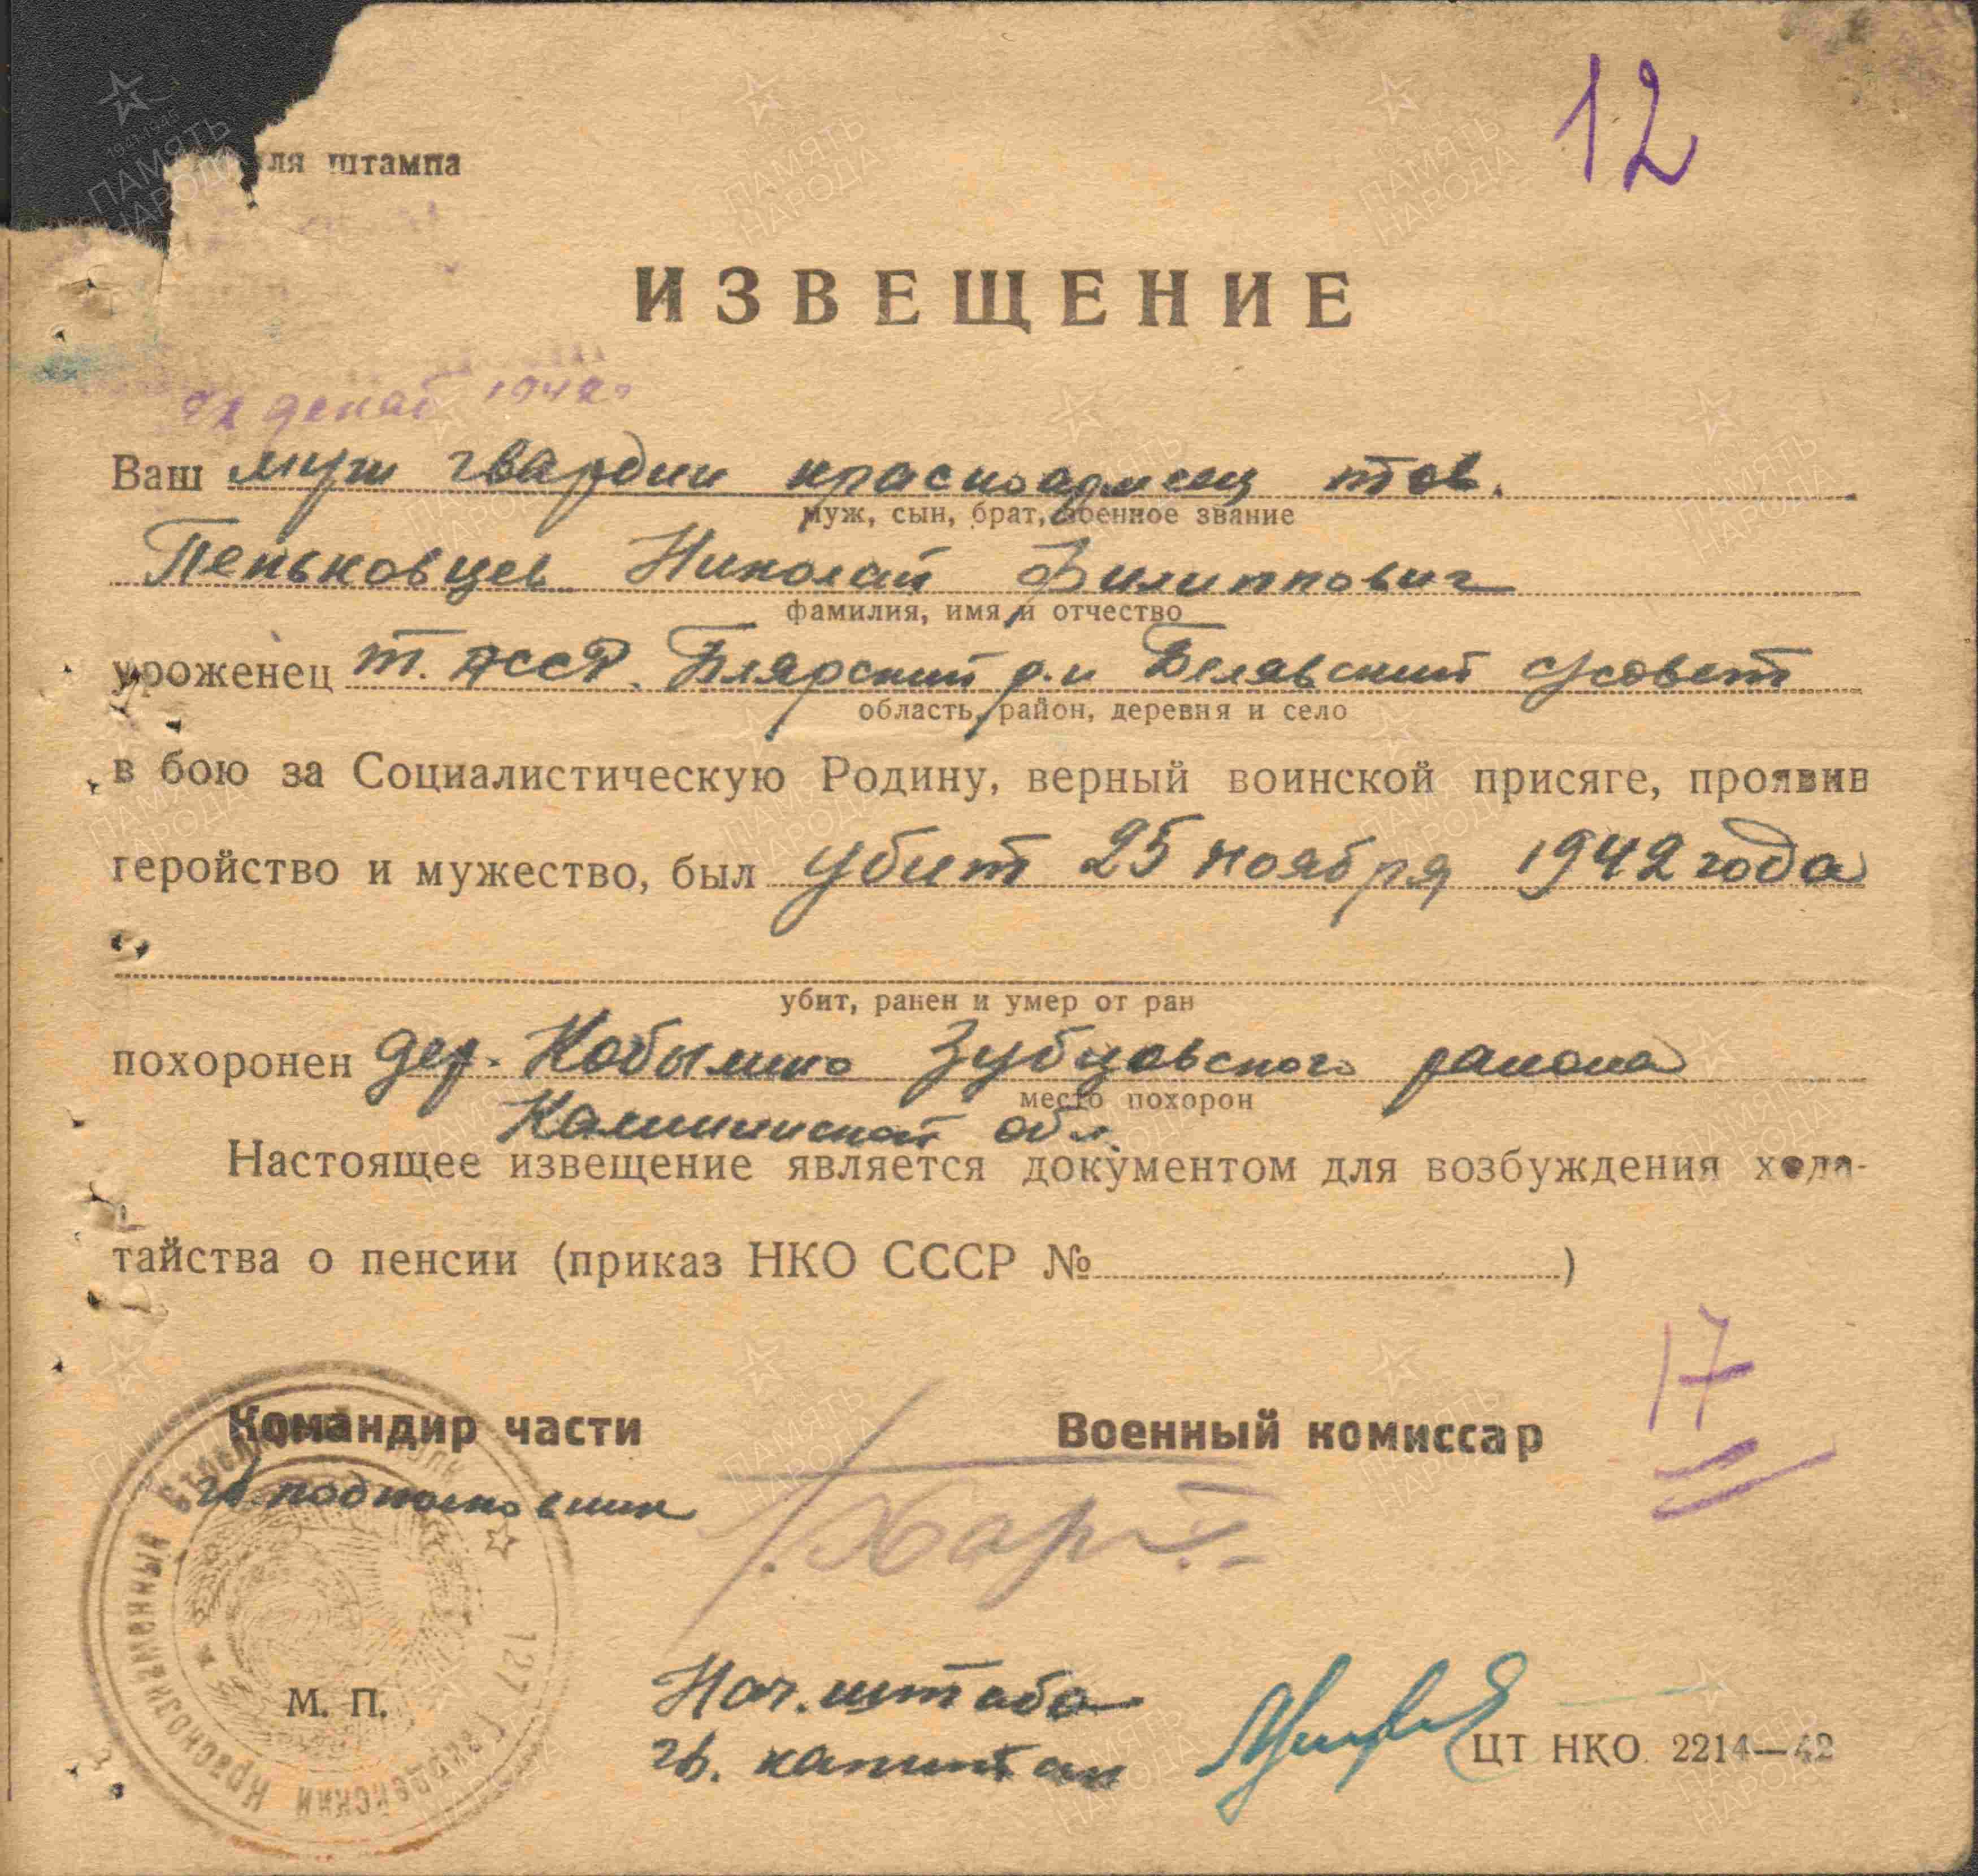 12
ля штампа
ИЗВЕЩЕНИЕ
декаб 1942г
Ваш муж гвардии красноармеец тов.
муж, сын, брат, военное звание
Пеньковцев Николай Филиппович
фамилия, имя и отчество
уроженец Т. АССР. Билярский р-н Белявский с/совет
область, район, деревня и село
в бою за Социалистическую Родину, верный воинской присяге, проявив
геройство и мужество, был убит 25 ноября 1942 года
убит, ранен и умер от ран
похоронен дер. Кобылино Зубцовского района
место похорон
Калининской обл.
Настоящее извещение является документом для возбуждения хода-
тайства о пенсии (приказ НКО СССР № )
17
Командир части Военный комиссар
гв. подполковник
М. П.
Нач. штаба
гв. капитан
ЦТ НКО. 2214—42
127 Гвардейский Краснознаменный Стрелковый
ПАМЯТЬ НАРОДА